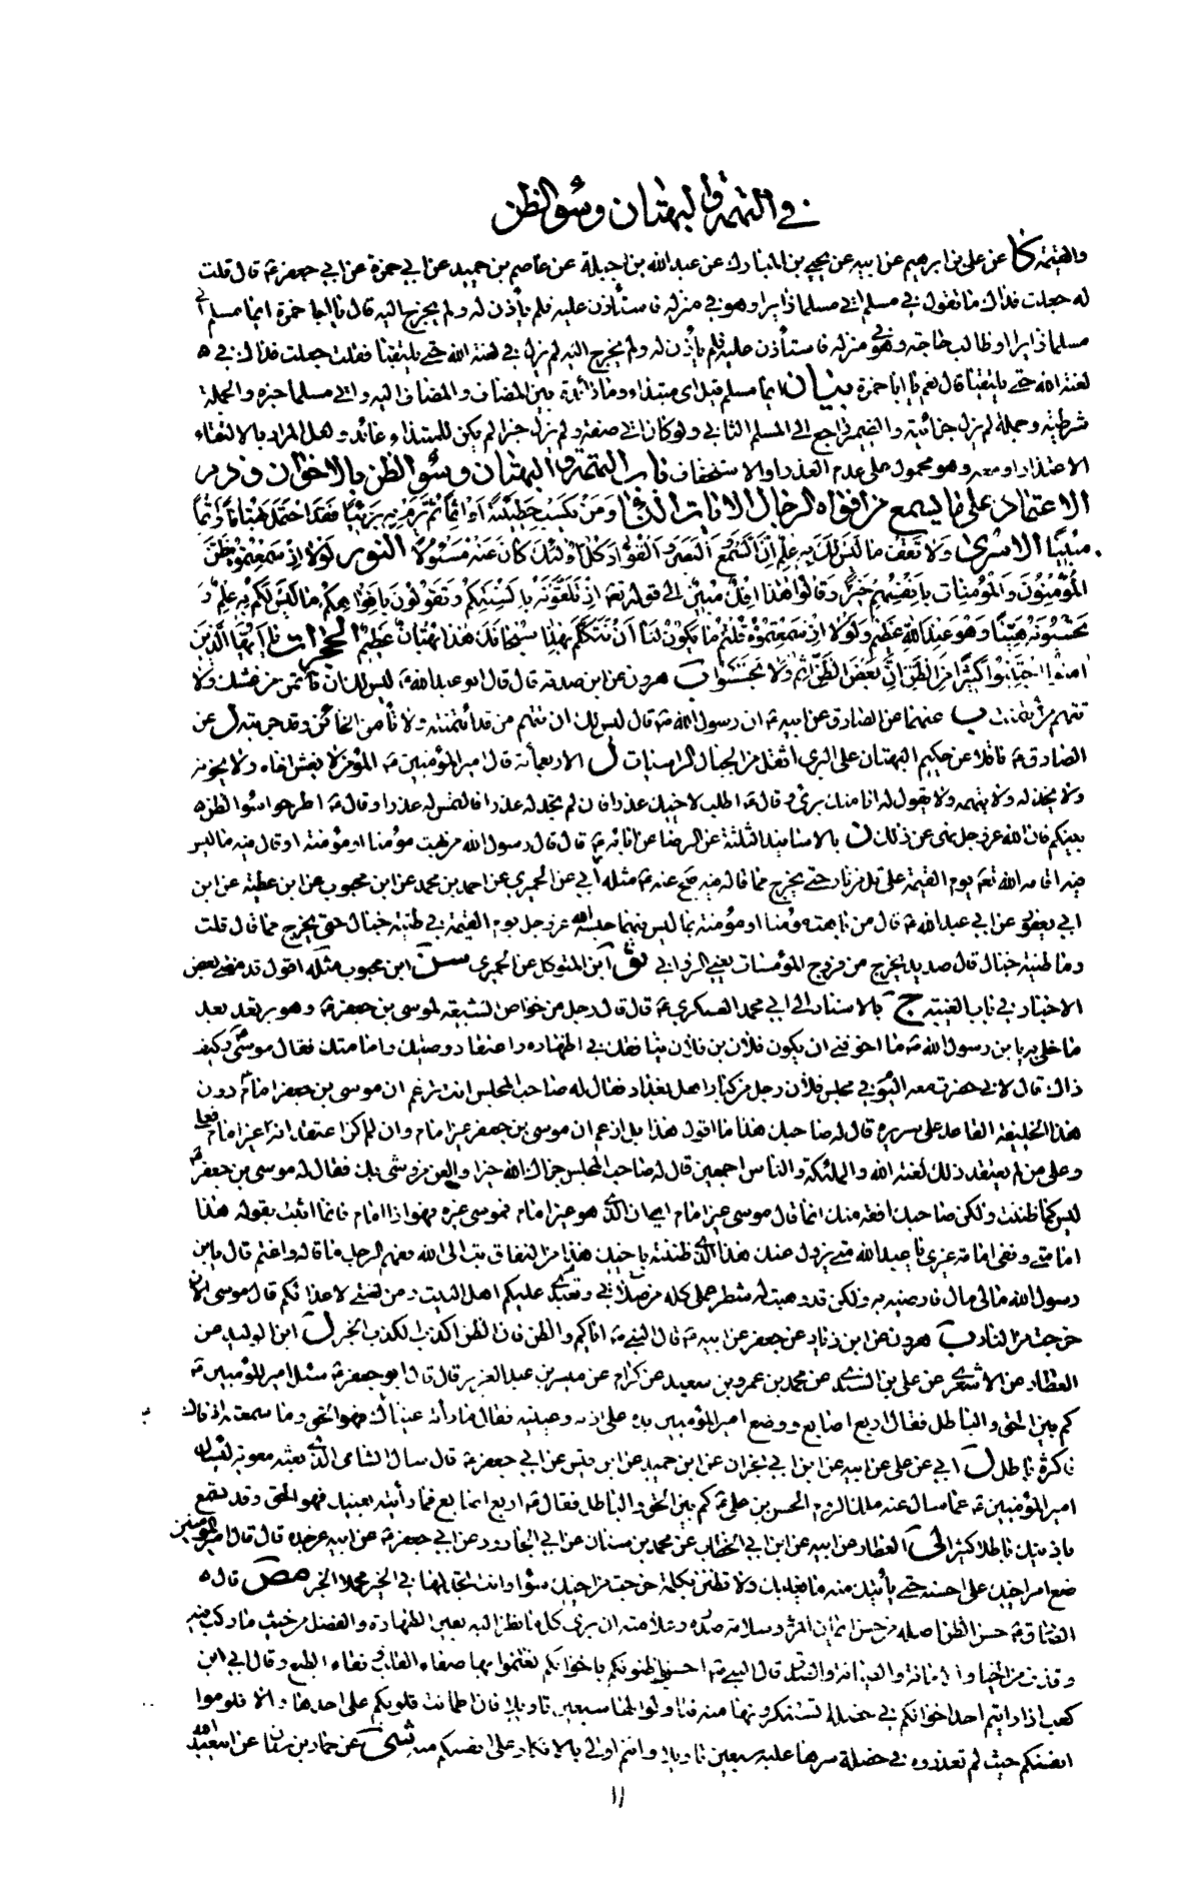 في التهمة والبهتان وسوء الظن
والقيمة كا عن علي بن ابرهيم عن ابيه عن يحيى بن المبارك عن عبد الله بن جبلة عن عاصم بن حميد عن ابي حمزة عن ابي جعفر ع قال قلت
له جعلت فداك ما تقول في مسلم اتى مسلما زايرا وهو في منزله فاستأذن عليه فلم يأذن له ولم يخرج اليه قال يا ابا حمزة ايما مسلم اتى
مسلما زايرا او طالب حاجة وهو في منزله فاستأذن عليه فلم يأذن له ولم يخرج اليه لم يزل في لعنة الله حتى يلتقيا فقلت جعلت فداك في
لعنة الله حتى يلتقيا قال نعم يا ابا حمزة بيان ايما مسلم قيل اي مبتداء وما زائدة بين المضاف والمضاف اليه واتى مسلما خبره والجملة
شرطية وجملة لم يزل جزائية والضمير راجع الى المسلم الثاني ولو كان اتى صفة ولم يزل خبرا لم يكن للمبتداء عائد ولعل المراد بالالتقاء
الاعتذار او معه وهو محمول على عدم العذر او الاستخفاف باب التهمة والبهتان وسوء الظن بالاخوان وذم
الاعتماد على ما يسمع من افواه الرجال الايات النساء وَمَنْ يَكْسِبْ خَطِيئَةً اَوْ اِثْمًا ثُمَّ يَرْمِ بِهِ بَرِيئًا فَقَدِ احْتَمَلَ بُهْتَانًا وَاِثْمًا
مُبِينًا الاسرى وَلَا تَقْفُ مَا لَيْسَ لَكَ بِهِ عِلْمٌ اِنَّ السَّمْعَ وَالْبَصَرَ وَالْفُؤَادَ كُلُّ اُولَئِكَ كَانَ عَنْهُ مَسْئُولًا النور لَوْلَا اِذْ سَمِعْتُمُوهُ ظَنَّ
الْمُؤْمِنُونَ وَالْمُؤْمِنَاتُ بِاَنْفُسِهِمْ خَيْرًا وَقَالُوا هٰذَا اِفْكٌ مُبِينٌ الى قوله تعه اِذْ تَلَقَّوْنَهُ بِاَلْسِنَتِكُمْ وَتَقُولُونَ بِاَفْوَاهِكُمْ مَا لَيْسَ لَكُمْ بِهِ عِلْمٌ وَ
تَحْسَبُونَهُ هَيِّنًا وَهُوَ عِنْدَ اللهِ عَظِيمٌ وَلَوْلَا اِذْ سَمِعْتُمُوهُ قُلْتُمْ مَا يَكُونُ لَنَا اَنْ نَتَكَلَّمَ بِهٰذَا سُبْحَانَكَ هٰذَا بُهْتَانٌ عَظِيمٌ الحجرات يَا اَيُّهَا الَّذِينَ
امَنُوا اجْتَنِبُوا كَثِيرًا مِنَ الظَّنِّ اِنَّ بَعْضَ الظَّنِّ اِثْمٌ وَلَا تَجَسَّسُوا ب هرون عن ابن صدقة قال قال ابو عبد الله ع ليس لك ان تأتمن من غشك ولا
تتهم من ائتمنت ب عنهما عن الصادق عن ابيه ع ان رسول الله ص قال ليس لك ان تتهم من قد ائتمنته ولا تأمن الخائن وقد جربته ل عن
الصادق ع ناقلا عن حكيم البهتان على البري اثقل من الجبال الراسيات ل الاربعمأة قال امير المؤمنين ع المؤمن لا يغش اخاه ولا يخونه
ولا يخذله ولا يتهمه ولا يقول له انا منك بريء وقال ع اطلب لاخيك عذرا فان لم تجد له عذرا فالتمس له عذرا وقال ع اطرحوا سوء الظن
بينكم فان الله عز وجل نهى عن ذلك ن بالاسانيد الثلثة عن الرضا عن ابائه ع قال قال رسول الله من بهت مؤمنا او مؤمنة او قال فيه ما ليس
فيه اقامه الله تعه يوم القيمة على تل من نار حتى يخرج مما قاله فيه صح عنه ع مثله ابي عن الحميري عن احمد بن محمد عن ابن محبوب عن ابن عطية عن ابن
ابي يعفور عن ابي عبد الله ع قال من باهت مؤمنا او مؤمنة بما ليس فيهما حبسه الله عز وجل يوم القيمة في طينة خبال حتى يخرج مما قال قلت
وما طينة خبال قال صديد يخرج من فروج المومسات يعني الزواني ثو ابن المتوكل عن الحميري سن ابن محبوب مثله اقول قد مضى بعض
الاخبار في باب الغيبة ج بالاسناد الى ابي محمد العسكري ع قال قال رجل من خواص الشيعة لموسى بن جعفر ع وهو يرتعد بعد
ما خلي به يا بن رسول الله ص ما اخوفني ان يكون فلان بن فلان ينافقك في اظهاره واعتقاد وصيتك وامامتك فقال موسى ع وكيف
ذاك قال لاني حضرت معه اليوم في مجلس فلان رجل من كبار اهل بغداد فقال له صاحب المجلس انت تزعم ان موسى بن جعفر امام دون
هذا الخليفة القاعد على سريره قال له صاحبك هذا ما اقول هذا بل ازعم ان موسى بن جعفر غير امام وان لم اكن اعتقد انه غير امام فعلي
وعلى من لم يعتقد ذلك لعنة الله والملئكة والناس اجمعين قال له صاحب المجلس جزاك الله خيرا ولعن من وشى بك فقال له موسى بن جعفر ع
ليس كما ظننت ولكن صاحبك افقه منك انما قال موسى غير امام اي ان الذي هو غير امام فموسى غيره فهو اذا امام فانما اثبت بقوله هذا
امامتي ونفى امامة غيري يا عبد الله متى يزول عنك هذا الذي ظننته باخيك هذا من النفاق تب الى الله ففهم الرجل ما قاله واغتم قال يا بن
رسول الله مالي مال فارضيه به ولكن قد وهبت له شطر عملي كله من صلاتي وتعبدي عليكم اهل البيت ومن لعنتي لاعدائكم قال موسى الان
خرجت من النار ب هرون عن ابن زياد عن جعفر عن ابيه ع قال النبي ص اياكم والظن فان الظن اكذب الكذب الخبر ل ابن الوليد عن
العطار عن الاشعري عن علي بن السندي عن محمد بن عمرو بن سعيد عن كرام عن ميسر بن عبد العزيز قال قال ابو جعفر ع سئل امير المؤمنين ع
كم بين الحق والباطل فقال اربع اصابع ووضع امير المؤمنين يده على اذنه وعينيه فقال ما رأته عيناك فهو الحق وما سمعته اذناك
فاكثره باطل ل ابي عن علي عن ابيه عن ابن ابي نجران عن ابن حميد عن ابن قيس عن ابي جعفر ع قال سال الشامي الذي بعثه معوية ليسال
امير المؤمنين ع عما سال عنه ملك الروم الحسن بن علي ع كم بين الحق والباطل فقال ع اربع اصابع فما رأيته بعينك فهو الحق وقد تسمع
باذنيك باطلا كثيرا لى العطار عن ابيه عن ابن ابي الخطاب عن محمد بن سنان عن ابي الجارود عن ابي جعفر ع عن ابيه عن جده قال قال امير المؤمنين
ضع امر اخيك على احسنه حتى يأتيك منه ما يغلبك ولا تظنن بكلمة خرجت من اخيك سوءا وانت تجد لها في الخير محملا الخبر مص قال
الصادق ع حسن الظن اصله من حسن ايمان المرء وسلامة صدره وعلامته ان يرى كلما نظر اليه بعين الطهارة والفضل من حيث ما ركب فيه
وقذف من الحياء والامانة والصيانة والصدق قال النبي ص احسنوا ظنونكم باخوانكم تغتنموا بها صفاء القلب ونقاء الطبع وقال ابي ابن
كعب اذا رايتم احد اخوانكم في خصلة تستنكرونها منه فتاولوا لها سبعين تاويلا فان اطمانت قلوبكم على احدها والا فلوموا
انفسكم حيث لم تعذروه في خصلة سترها عليه سبعين تاويلا وانتم اولى بالانكار على انفسكم منه شى عن حماد بن عثمان عن
١١